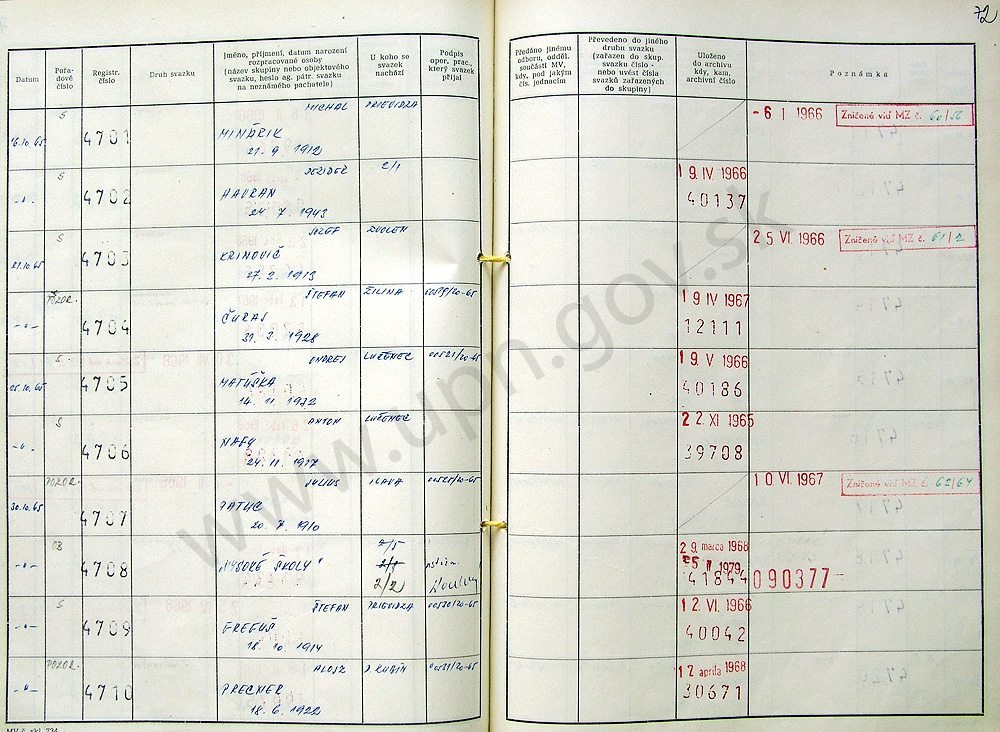 72
Datum
Pořa-
dové
číslo
Registr.
číslo
Druh svazku
Jméno, příjmení, datum narození
rozpracované osoby
(název skupiny nebo objektového
svazku, heslo ag. pátr. svazku
na neznámého pachatele)
U koho se
svazek
nachází
Podpis
oper. prac.,
který svazek
přijal
Předáno jinému
odboru, odděl.
součásti MV,
kdy, pod jakým
čís. jednacím
Převedeno do jiného
druhu svazku
(zařazen do skup.
svazku číslo -
nebo uvést čísla
svazků zařazených
do skupiny)
Uloženo
do archivu
kdy, kam,
archivní číslo
Poznámka
16.10.65 S 4701 MICHAL PRIEVIDZA
MINÁRIK
21. 9. 1912
- 6 I 1966 Zničené viď MZ č. 60/56
-"- S 4702 2/1
HAVRAN
24. 7. 1943
19. IV 1966
40137
21.10.65 S 4703 JOZEF ZVOLEN
KRINOVIČ
27. 2. 1913
25 VI. 1966 Zničené viď MZ č. 61/2
-"- POZOR. 4704 ŠTEFAN ŽILINA
ČURAJ
31. 3. 1928
19 IV 1967
12111
25.10.65 S 4705 ONDREJ LUČENEC 00521/20-65
MATÚŠKA
14. 11. 1932
19. V. 1966
40186
-"- S 4706 ANTON LUČENEC
NAGY
24. 11. 1917
22 XI 1965
39708
30.10.65 POZOR. 4707 JÚLIUS ILAVA
20. 7. 1910
10 VI. 1967 Zničené viď MZ č. 62/64
-"- 4708 2/5
"VYSOKÉ ŠKOLY" 2/1
2/2
29. marca 1968
25 II 1979
41844 090377
-"- S 4709 ŠTEFAN PRIEVIDZA 00530/20-65
GREGUŠ
18. 10 1914
12. VI. 1966
40042
-"- POZOR. 4710 ALOJZ D. KUBÍN 00531/20-65
PRECNER
18. 6. 1922
12 apríla 1968
30671
www.upn.gov.sk